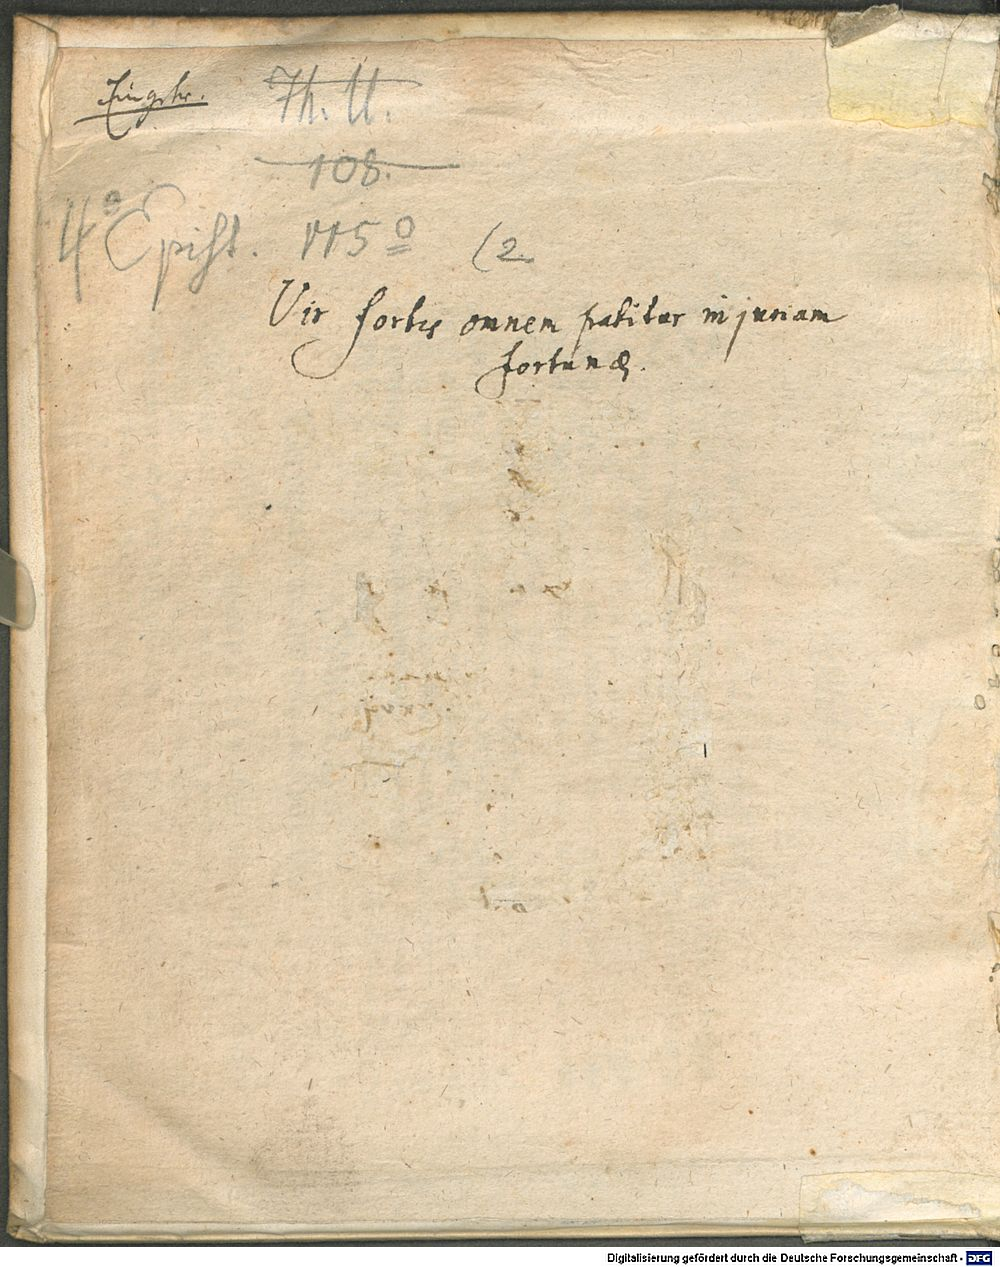 Th. U.
108.
4° Epist. 115º (2.
Vir fortis omnem patitur injuriam
fortunæ.
Digitalisierung gefördert durch die Deutsche Forschungsgemeinschaft - DFG